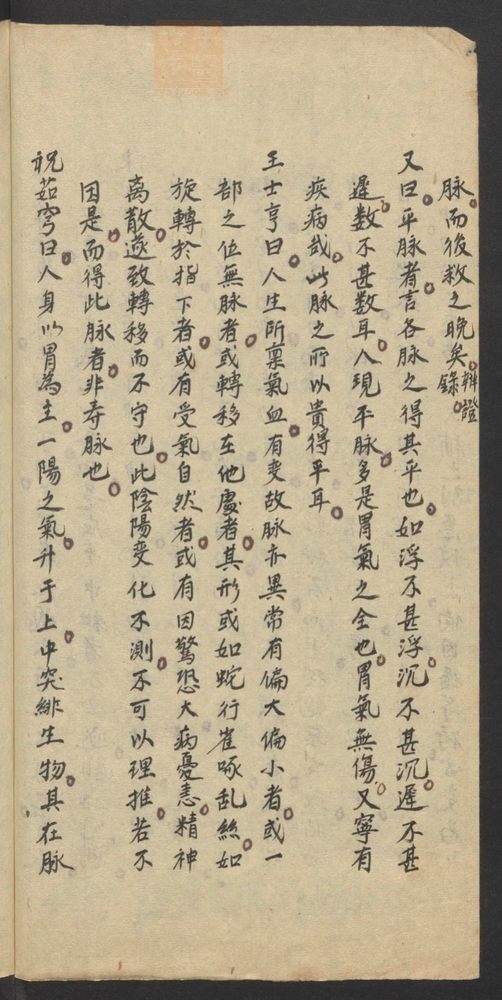 脉而後救之晚矣辨證錄
又曰平脉者言各脉之得其平也如浮不甚浮沉不甚沉遲不甚
遲数不甚数耳人現平脉多是胃氣之全也胃氣無傷又寧有
疾病哉此脉之所以貴得平耳
王士亨曰人生所稟氣血有变故脉亦異常有偏大偏小者或一
部之位無脉者或轉移在他處者其形或如蛇行雀啄乱絲如
旋轉於指下者或有受氣自然者或有因驚恐大病憂恚精神
离散遂致轉移而不守也此陰陽变化不測不可以理推若不
因是而得此脉者非寿脉也
祝茹穹曰人身以胃為主一陽之氣升于上中突緋生物其在脉